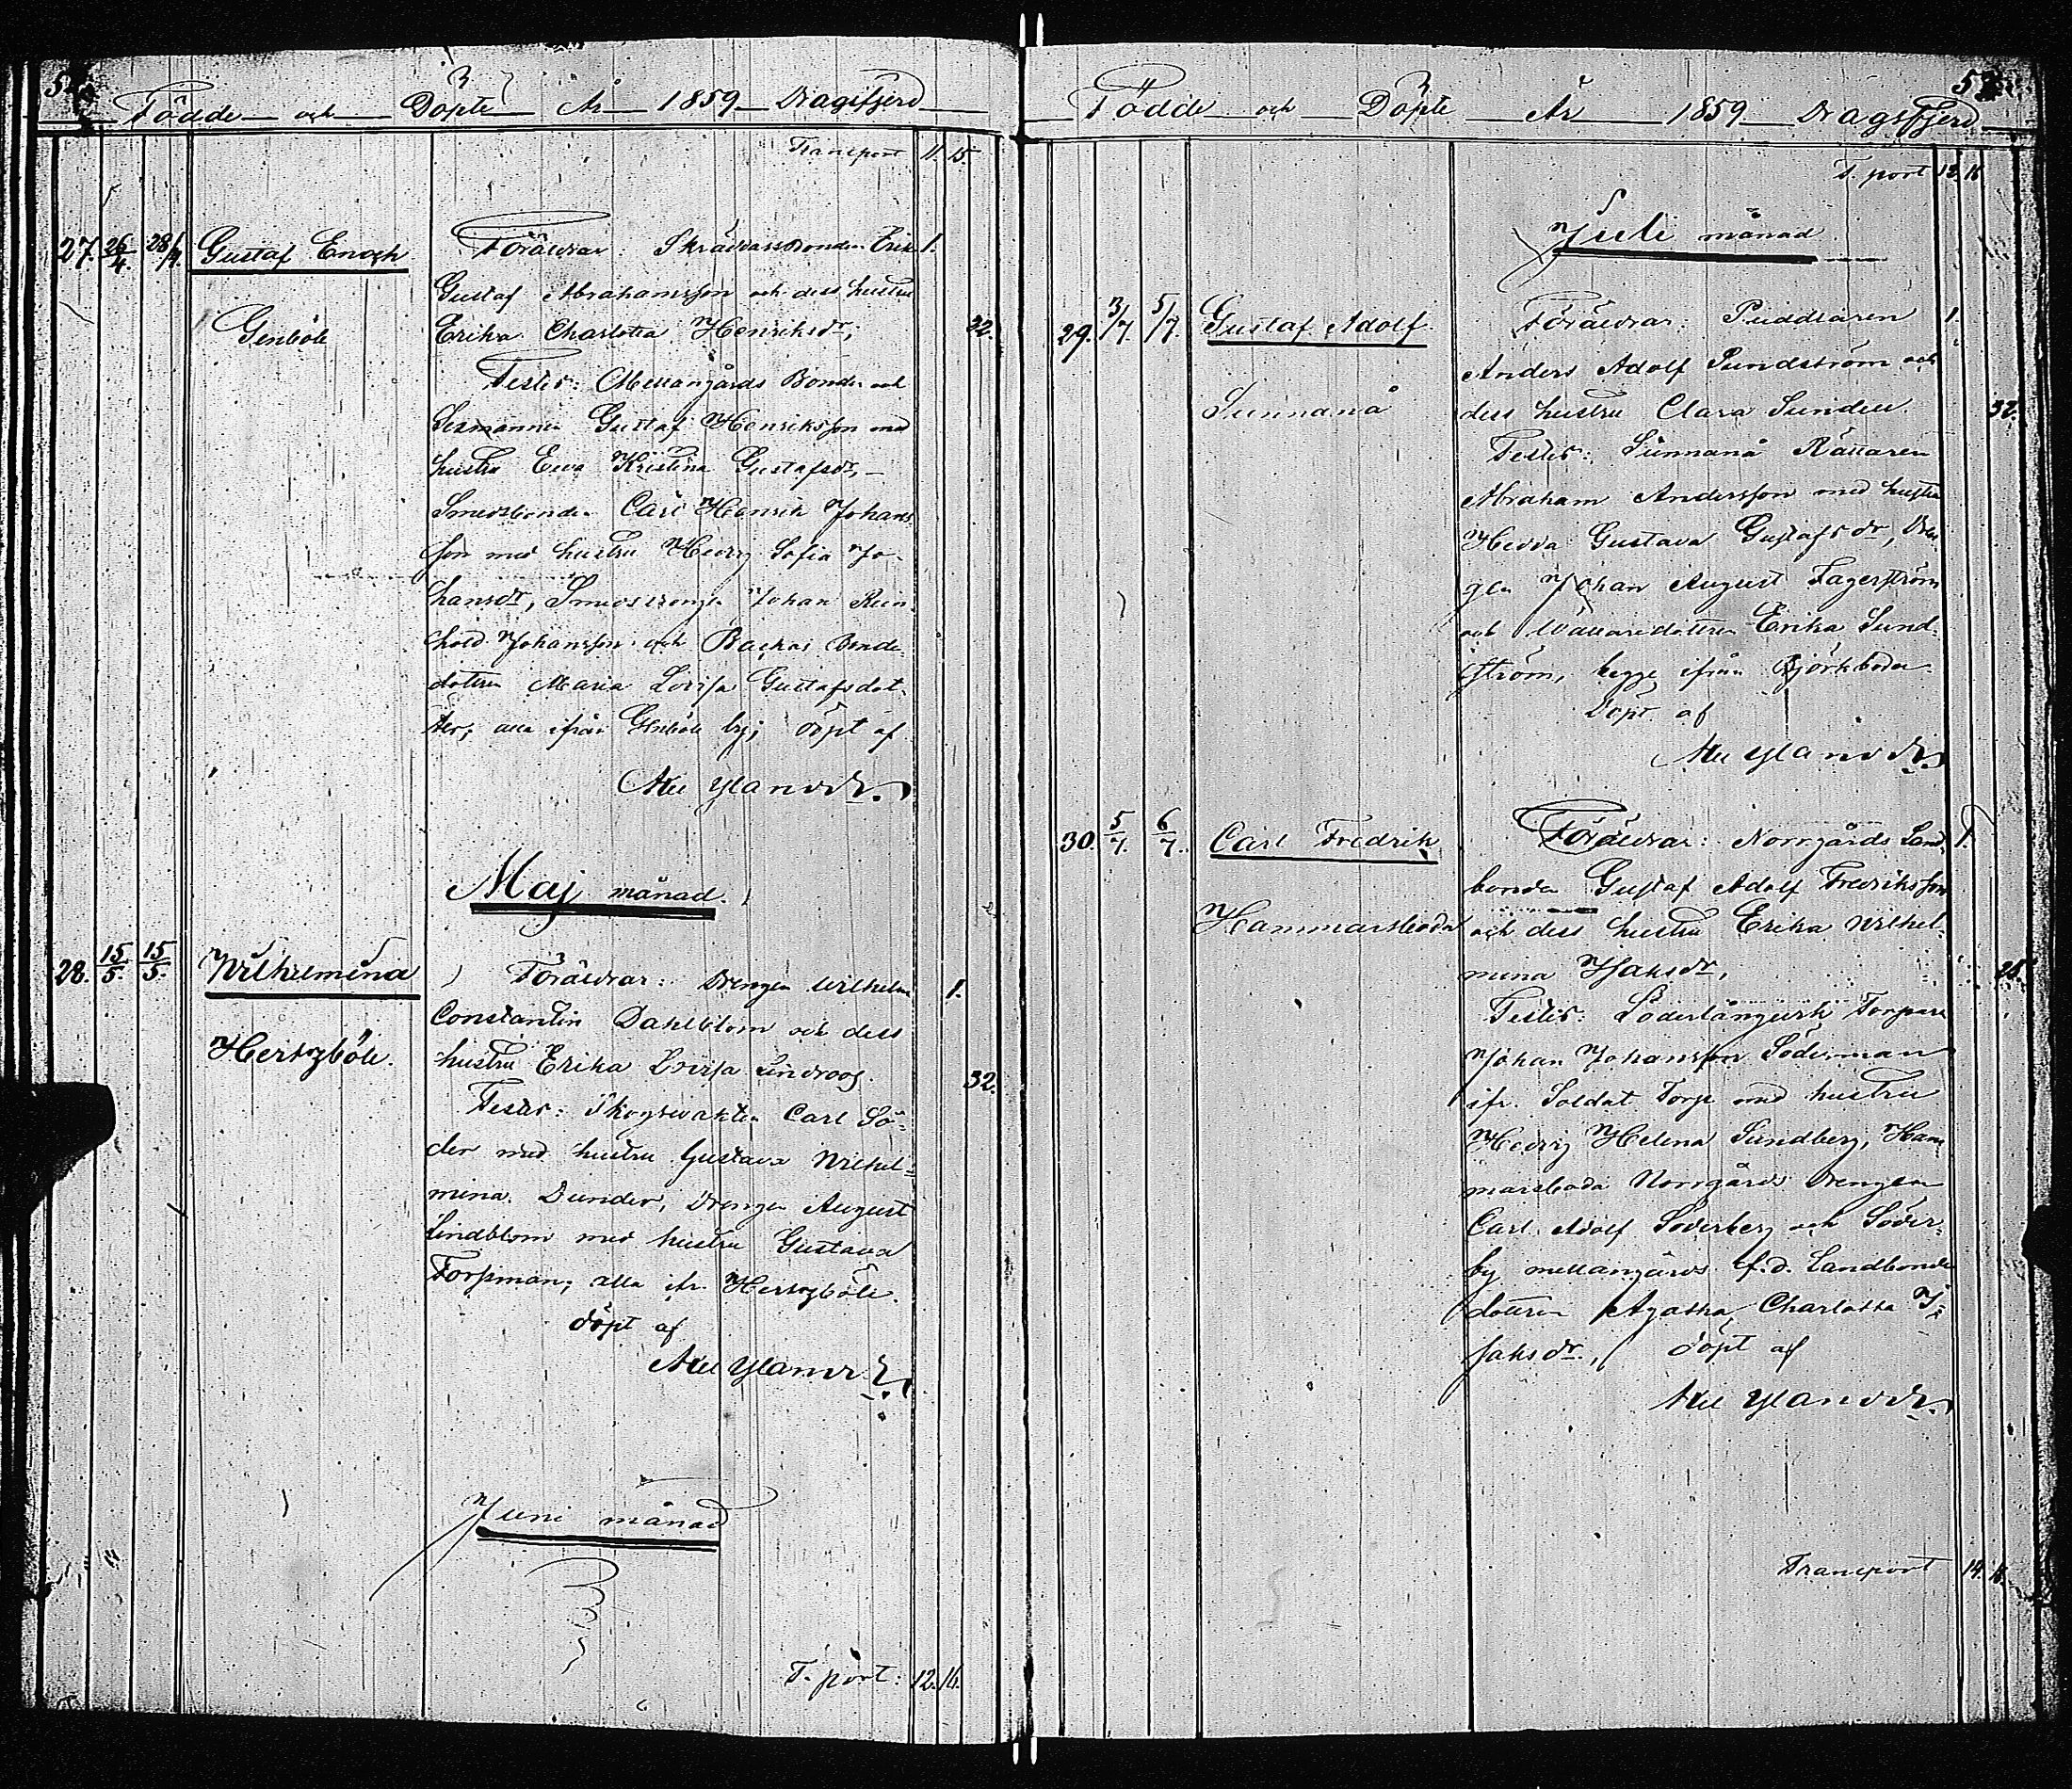 Födde och Döpte År 1859 Dragsfjerd
Transport 11. 15.
27. 26/4. 28/4 Gustaf Enoch
Genböle
Föräldrar: Skräddarsbonden Erik 1.
Gustaf Abrahamsson och dess hustru
Erika Charlotta Henriksdr; 32.
Testes: Mellangårds Bonden och
Sexmannen Gustaf Henriksson med
hustru Eva Kristina Gustafsdr, –
Smedsbonden Carl Henrik Johans
son med hustru Hedvig Sofia Jo-
hansdr, Smedsdrengen Johan Rein-
hold Johansson och Backas Bonde
dottren Maria Lovisa Gustafsdot-
ter; alla ifrån Genböle by; döpt af
Axel Ylander.
Maj månad.
28. 15/5. 15/5. Wilhelmina
Hertzböle.
Föräldrar: Drengen Wilhelm 1.
Constantin Dahlblom och dess
hustru Erika Lovisa Lindroos. 32.
Testes: Skogsvakten Carl Sö-
der med hustru Gustava Wilhel-
mina Dunder, Drengen August
Lindblom med hustru Gustava
Forsman; alla ifr. Hertzböle.
döpt af
Axel Ylander
Juni månad
T. port: 12. 16.
Födde och Döpte År 1859 Dragsfjerd
T. port 12 16
Juli månad.
29. 3/7. 5/7. Gustaf Adolf.
Sunnanå
Föräldrar: Puddlaren 1.
Anders Adolf Sundström och
dess hustru Clara Sundell. 32.
Testes: Sunnanå Rättaren
Abraham Andersson med hustru
Hedda Gustava Gustafsdr, Dren
gen Johan August Fagerström
och Wällaredottren Erika Sund-
ström, begge ifrån Björkboda
Döpt af
Axel Ylander
30. 5/7. 6/7. Carl Fredrik
Hammarsboda
Föräldrar: Norrgårds Land- 1.
bonden Gustaf Adolf Fredriksson
och dess hustru Erika Wilhel-
mina Isaksdr, 25.
Testes: Söderlångvik Torpare
Johan Johansson Söderman
ifr. Soldat Torp med hustru
Hedvig Helena Sundberg, Ham
marsboda Norrgårds Drengen
Carl Adolf Söderberg och Söder-
by mellangårds f.d. Landbonde
dottren Agatha Charlotta I-
saksdr., döpt af
Axel Ylander
Transport 14. 16.